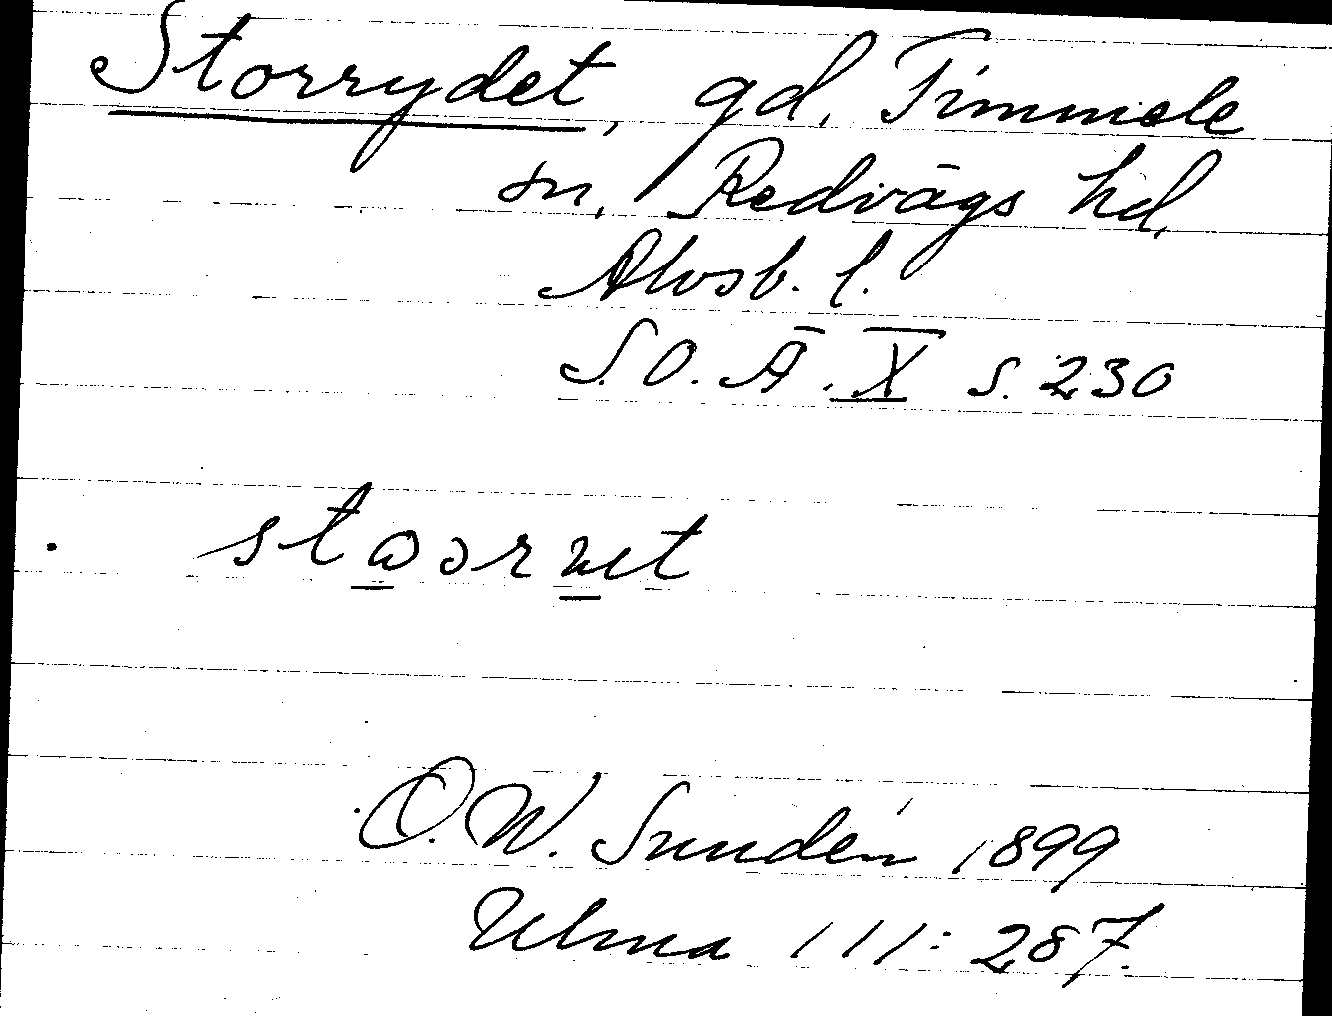 Storrydet, gd, Timmele
sn, Redvägs hd,
Älvsb. l.
S.O.Ä. X s. 230
O.W. Sundén 1899
Ulma 111:287.